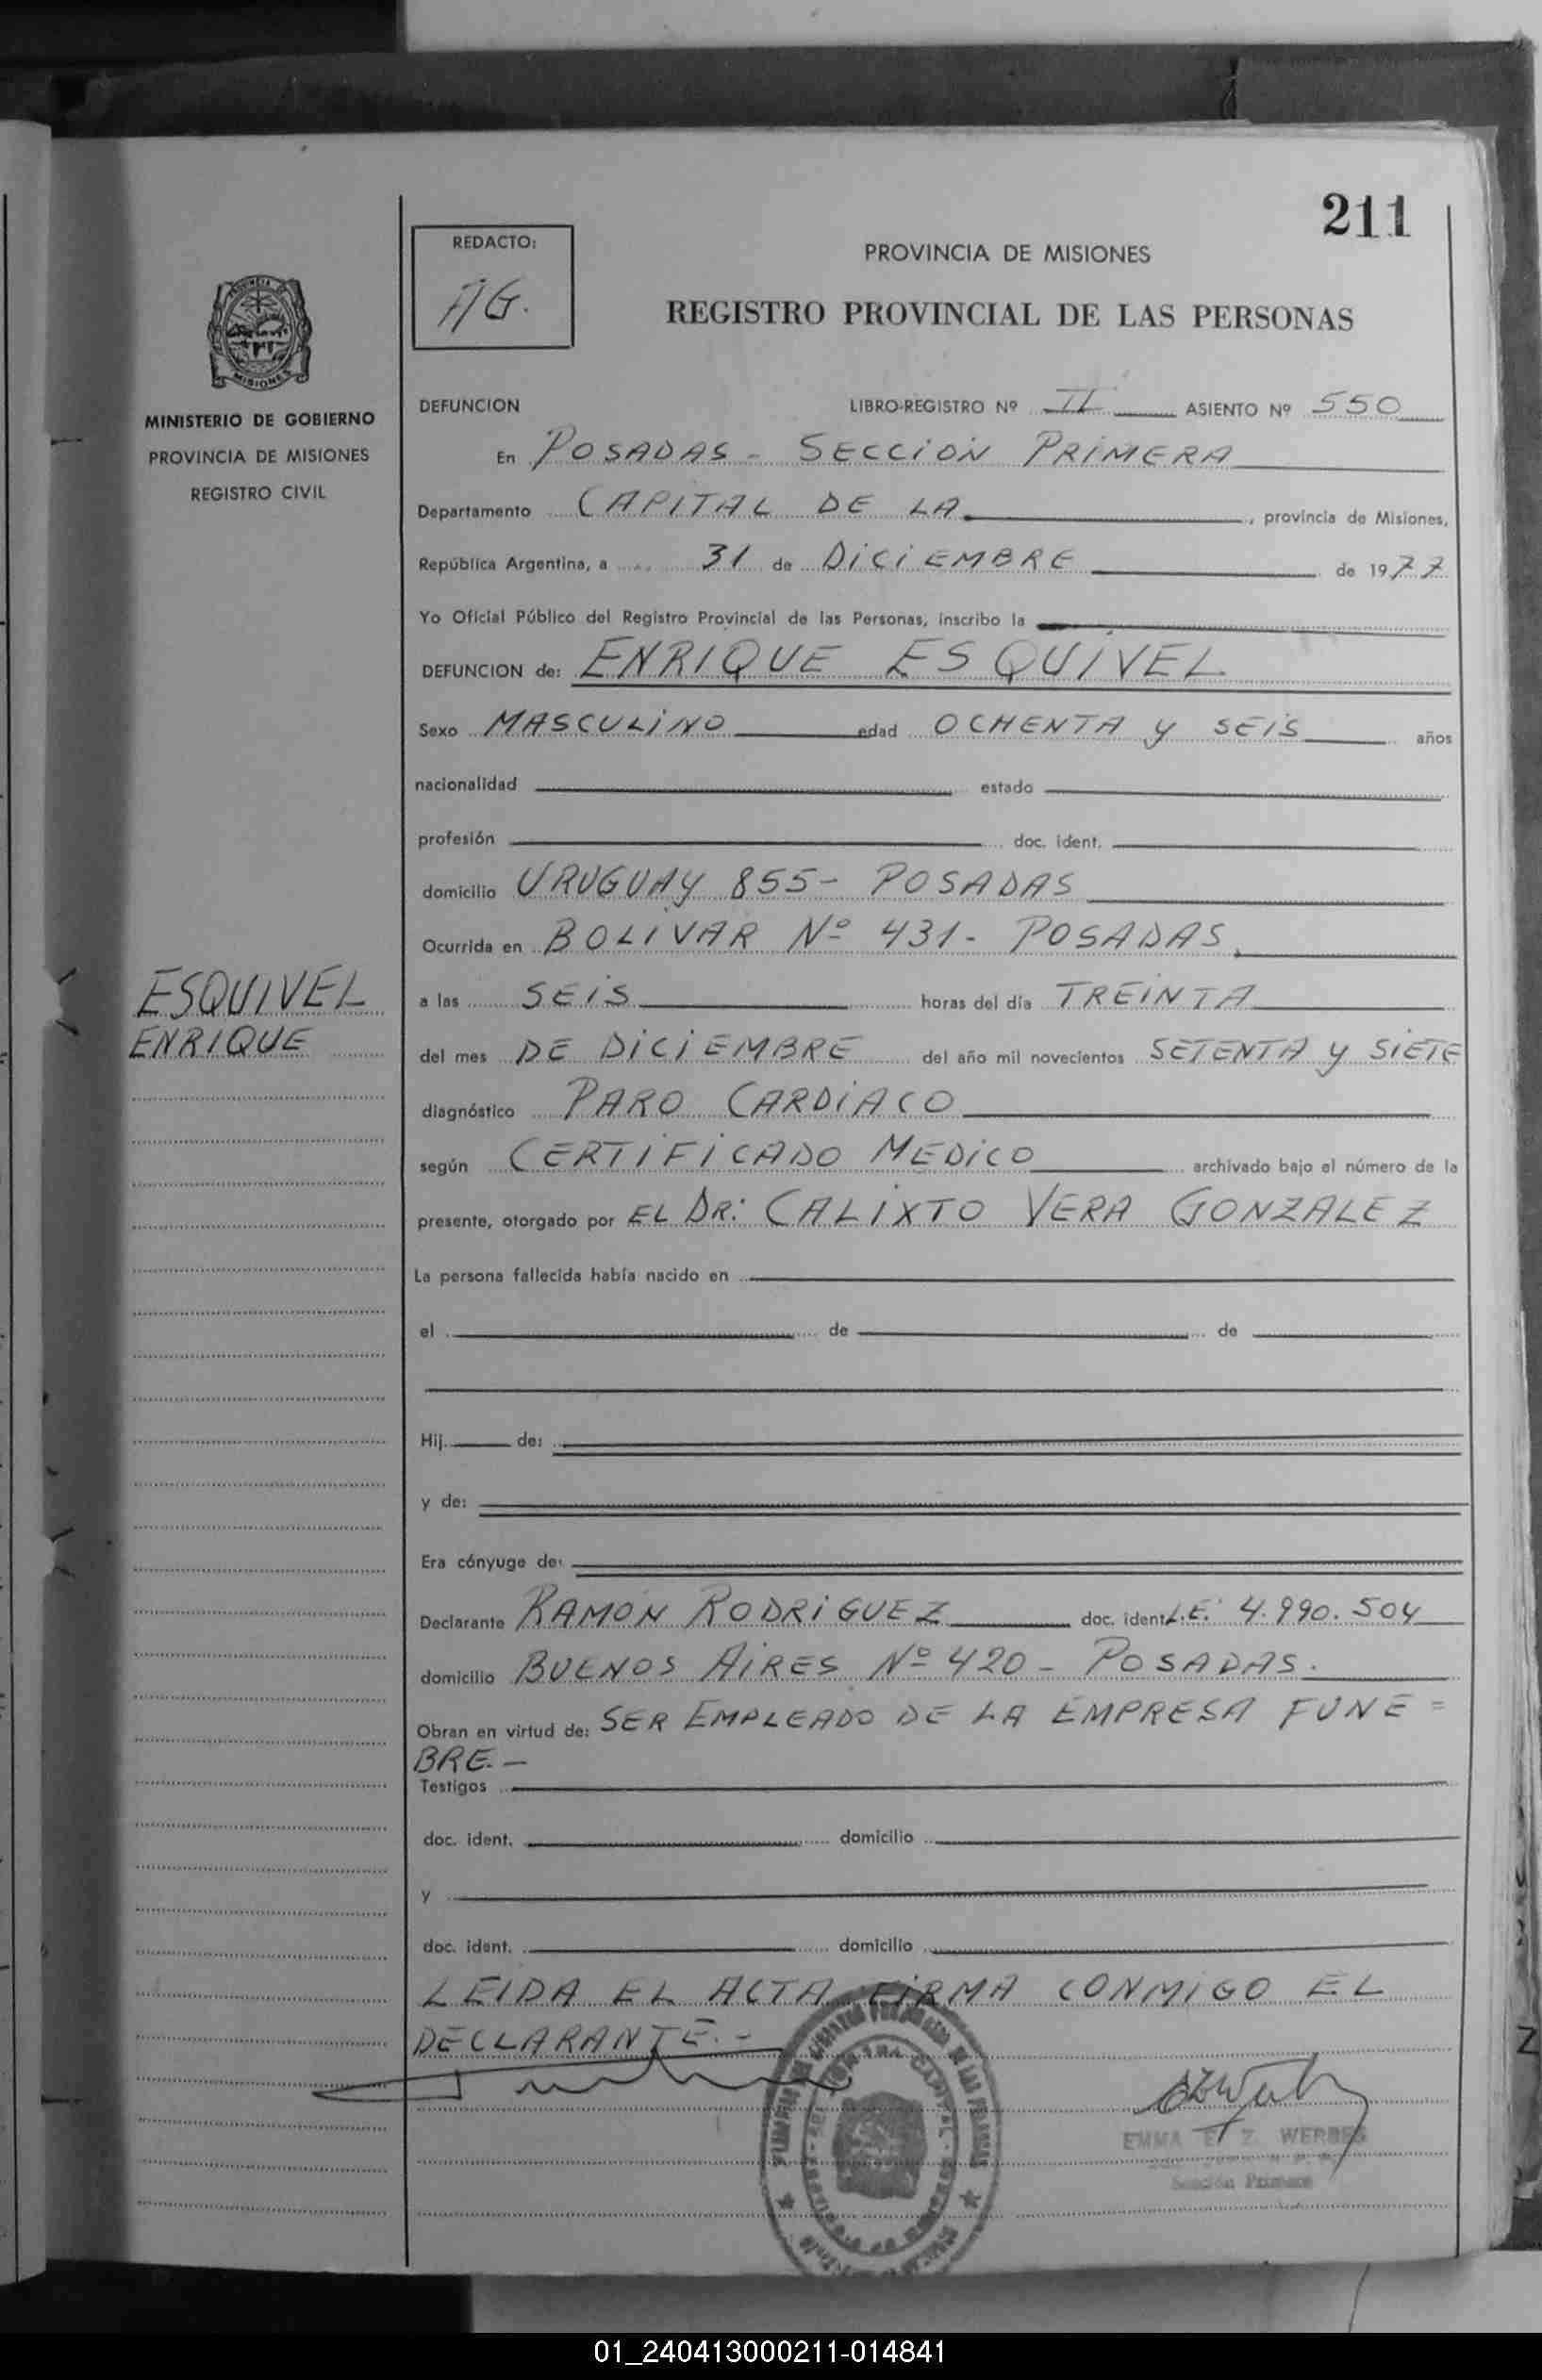 211
REDACTO:
AG.
PROVINCIA DE MISIONES
REGISTRO PROVINCIAL DE LAS PERSONAS
MISIONES
MINISTERIO DE GOBIERNO
PROVINCIA DE MISIONES
REGISTRO CIVIL
DEFUNCION LIBRO-REGISTRO Nº II ASIENTO Nº 550
En POSADAS - SECCION PRIMERA
Departamento CAPITAL DE LA, provincia de Misiones,
República Argentina, a 31 de DICIEMBRE de 1977
Yo Oficial Público del Registro Provincial de las Personas, inscribo la
DEFUNCION de: ENRIQUE ESQUIVEL
Sexo MASCULINO edad OCHENTA y SEIS años
nacionalidad estado
profesión doc. ident.
domicilio URUGUAY 855- POSADAS
Ocurrida en BOLIVAR Nº 431- POSADAS,
ESQUIVEL
ENRIQUE
a las SEIS horas del día TREINTA
del mes DE DICIEMBRE del año mil novecientos SETENTA y SIETE
diagnóstico PARO CARDIACO
según CERTIFICADO MEDICO archivado bajo el número de la
presente, otorgado por EL DR: CALIXTO VERA GONZALEZ
La persona fallecida había nacido en
el de de
Hij de:
y de:
Era cónyuge de:
Declarante RAMON RODRIGUEZ doc. ident. L.E. 4.990.504
domicilio BUENOS AIRES Nº 420 - POSADAS.
Obran en virtud de: SER EMPLEADO DE LA EMPRESA FUNE=
BRE.-
Testigos
doc. ident. domicilio
y
doc. ident. domicilio
LEIDA EL ACTA FIRMA CONMIGO EL
DECLARANTE.-
EMMA E. Z. WERBES
Sección Primera
01_240413000211-014841